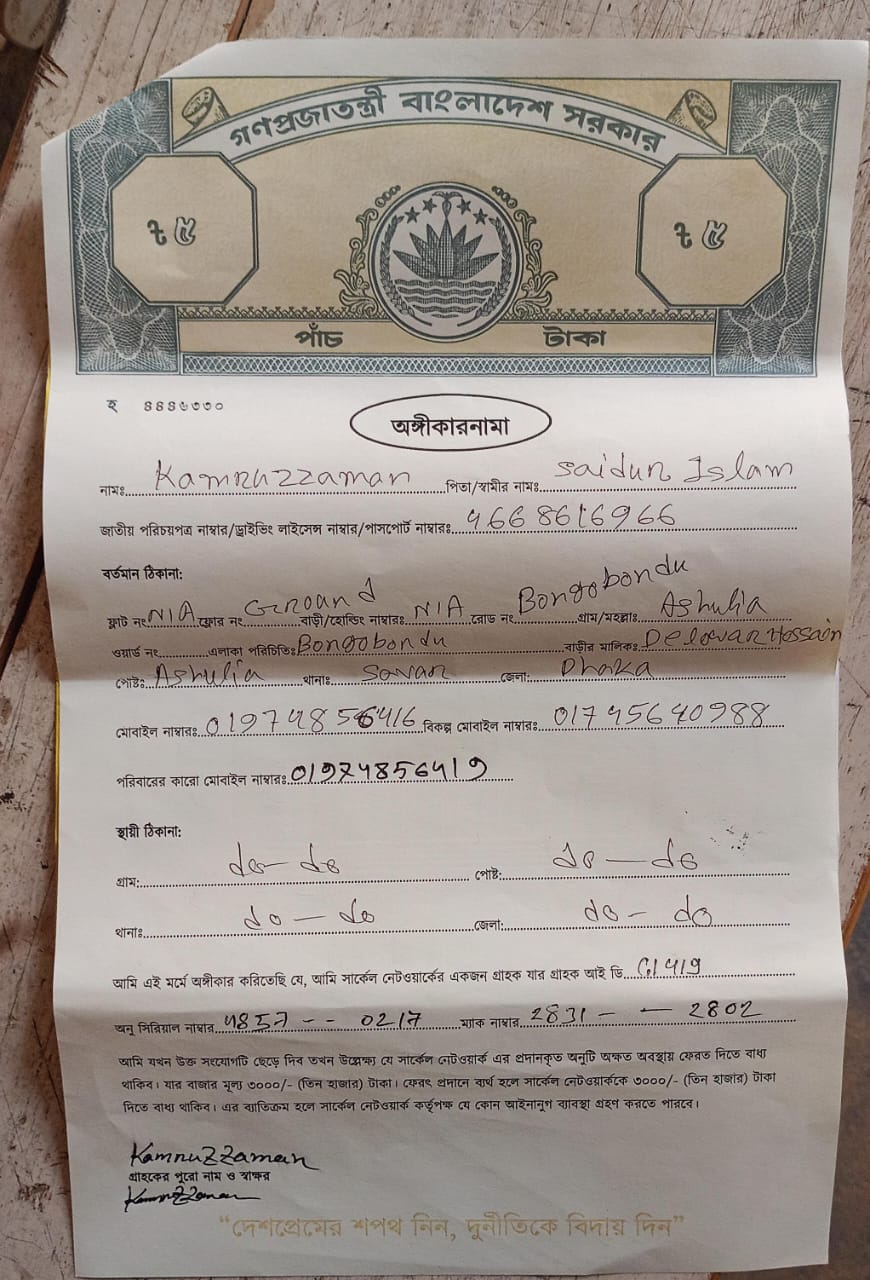 গণপ্রজাতন্ত্রী বাংলাদেশ সরকার
৳ ৫ ৳ ৫
পাঁচ টাকা
হ ৪৪৪৬৩৩০
অঙ্গীকারনামা
নামঃ Kamruzzaman পিতা/স্বামীর নামঃ Saidur Islam
জাতীয় পরিচয়পত্র নাম্বার/ড্রাইভিং লাইসেন্স নাম্বার/পাসপোর্ট নাম্বারঃ
বর্তমান ঠিকানা:
ফ্লাট নং N/A ফ্লোর নং Ground বাড়ী/হোল্ডিং নাম্বারঃ N/A রোড নং Bongobondu গ্রাম/মহল্লাঃ Ashulia
ওয়ার্ড নং এলাকা পরিচিতিঃ Bongobondu বাড়ীর মালিকঃ Delowar Hossain
পোষ্টঃ Ashulia থানাঃ Savar জেলা: Dhaka
মোবাইল নাম্বারঃ বিকল্প মোবাইল নাম্বারঃ 01745640988
পরিবারের কারো মোবাইল নাম্বারঃ 01974856419
স্থায়ী ঠিকানা:
গ্রাম: do - do পোষ্ট: do - do
থানাঃ do - do জেলা: do - do
আমি এই মর্মে অঙ্গীকার করিতেছি যে, আমি সার্কেল নেটওয়ার্কের একজন গ্রাহক যার গ্রাহক আই ডি
অনু সিরিয়াল নাম্বার 4857 -- 0217 ম্যাক নাম্বার 2831 - - 2802
আমি যখন উক্ত সংযোগটি ছেড়ে দিব তখন উল্লেক্ষ্য যে সার্কেল নেটওয়ার্ক এর প্রদানকৃত অনুটি অক্ষত অবস্থায় ফেরত দিতে বাধ্য
থাকিব। যার বাজার মূল্য ৩০০০/- (তিন হাজার) টাকা। ফেরৎ প্রদানে ব্যর্থ হলে সার্কেল নেটওয়ার্ককে ৩০০০/- (তিন হাজার) টাকা
দিতে বাধ্য থাকিব। এর ব্যাতিক্রম হলে সার্কেল নেটওয়ার্ক কর্তৃপক্ষ যে কোন আইনানুগ ব্যাবস্থা গ্রহণ করতে পারবে।
Kamruzzaman
গ্রাহকের পুরো নাম ও স্বাক্ষর
Kamruzzaman
“দেশপ্রেমের শপথ নিন, দুর্নীতিকে বিদায় দিন”